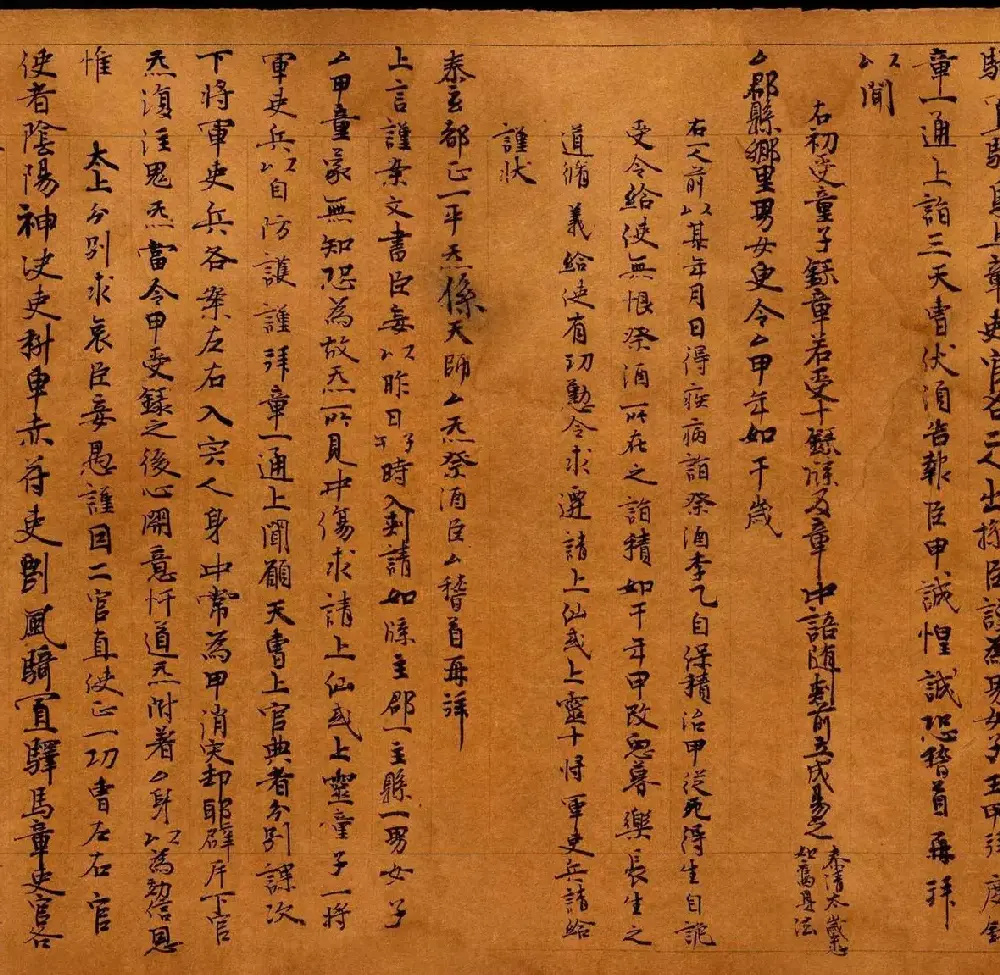 章一通上詣三天曹伏須告報臣甲誠惶誠恐稽首再拜
以聞
右初受童子籙章若受十籙牒及章中語隨剋前立成易之
厶郡縣鄉里男女更令厶甲年如干歲
右一人前以某年月日得疾病詣祭酒李乙自保積治甲從死得生自詭
受令給使無恨祭酒所在之詣積如干年甲改惡慕樂長生之
道脩義給使有功懃令求遷請上仙或上靈十將軍吏兵請給
謹狀
泰玄都正一平炁係天師厶炁祭酒臣厶稽首再拜
上言謹案文書臣每以昨日時入剋請如牒主郡一主縣一男女子
厶甲童蒙無知恐為故炁所見中傷求請上仙或上靈童子一將
軍吏兵以自防護謹拜章一通上聞願天曹上官典者分別課次
下將軍吏兵各案左右入宍人身中常為甲消灾却耶辟斥下官
炁復注鬼炁當令甲受籙之後心開意悟道炁附著厶身以為効信恩
惟 太上分別求哀臣妾愚謹因二官直使正一功曹左右官
使者陰陽神決吏科車赤符吏剛風騎置驛馬章吏官各